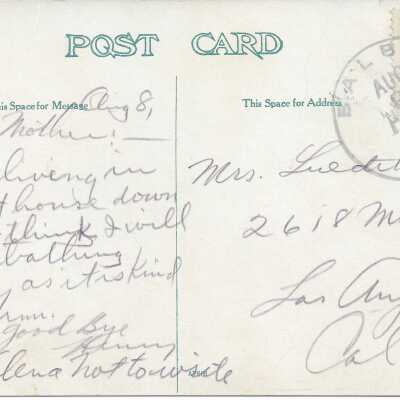 POST CARD
his Space for Message
Aug 8,
Mother:—
living in
house down
think I will
bathing
as it is kind
Good Bye
Henry
lena not to write
This Space for Address
Mrs.
2618 M
Los Ang
Cal
E. ALB
AUG